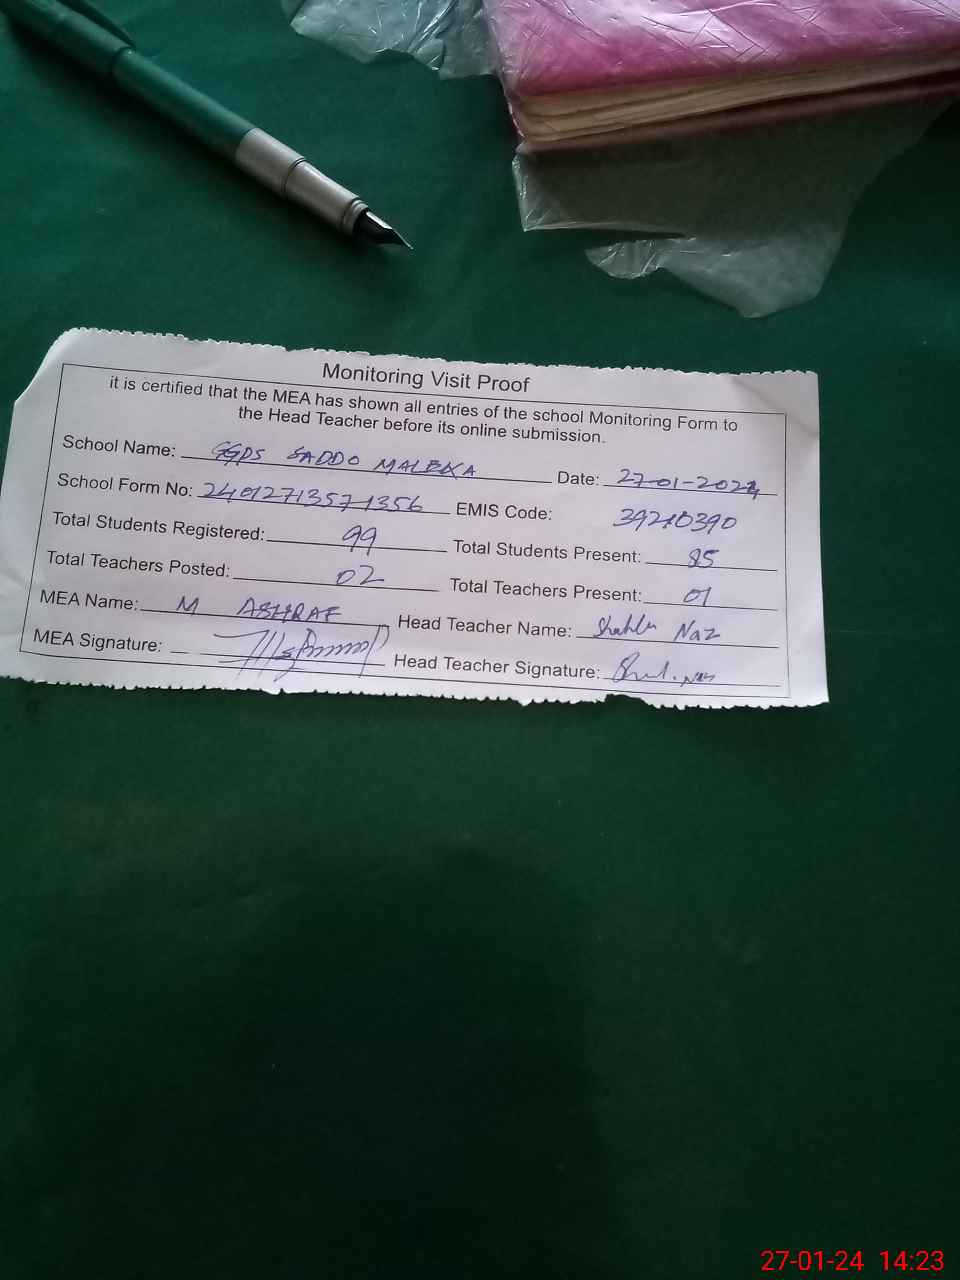 Monitoring Visit Proof
it is certified that the MEA has shown all entries of the school Monitoring Form to
the Head Teacher before its online submission.
School Name: GGPS SADDO MALEKA Date: 27-01-2024
School Form No: 24012713571356 EMIS Code: 39210390
Total Students Registered: 99 Total Students Present: 85
Total Teachers Posted: 02 Total Teachers Present: 01
MEA Name: M ASHRAF Head Teacher Name: Shahla Naz
MEA Signature: Head Teacher Signature:
27-01-24 14:23